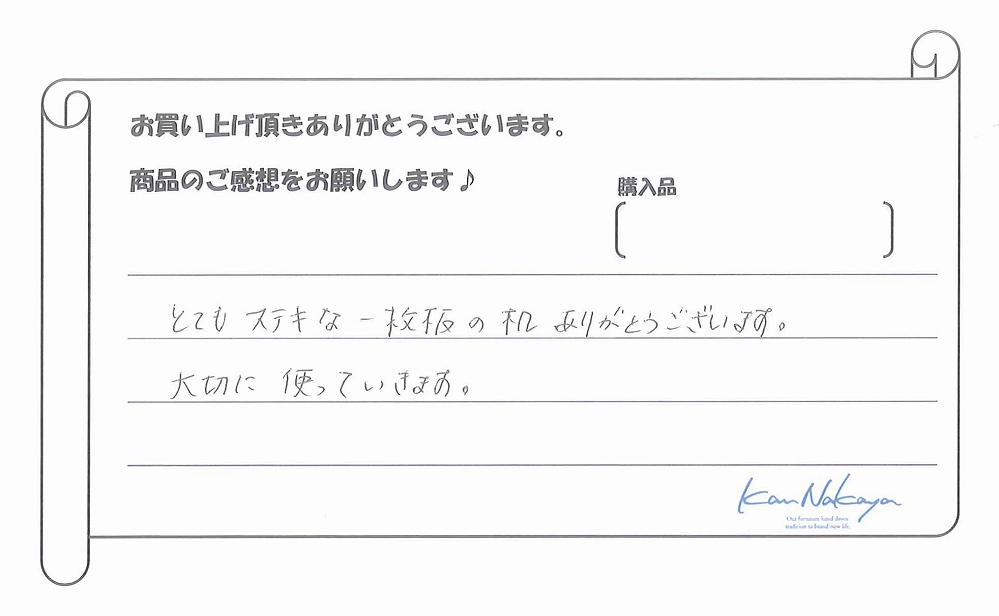 お買い上げ頂きありがとうございます。
商品のご感想をお願いします♪
購入品
とても ステキな 一枚板の 机 ありがとうございます。
大切に 使っていきます。
Kan Nakaya
Our furniture hand down
tradition to brand new life.